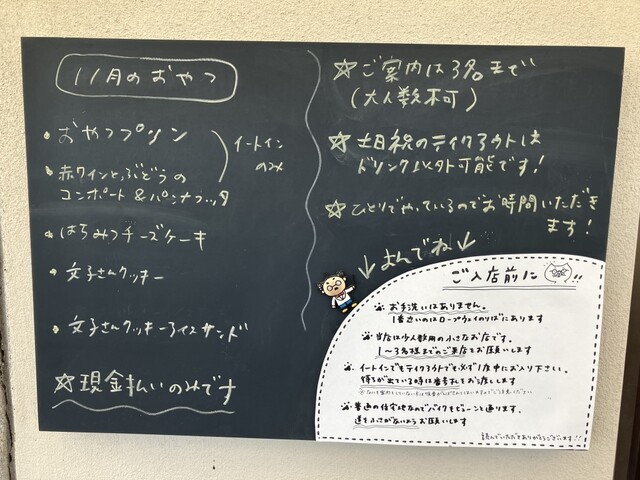 11月のおやつ
・おやつプリン
・赤ワインとぶどうの
コンポート＆パンナコッタ
イートイン
のみ
・はちみつチーズケーキ
・文子さんクッキー
・文子さんクッキーアイスサンド
☆現金払いのみです
☆ご案内は3名まで
(大人数不可)
☆土日祝のテイクアウトは
ドリンク以外可能です！
☆ひとりでやっているのでお時間いただき
ます！
↓よんでね↓
ご入店前に !!
お手洗いはありません。
1番近いのはロープウェイのりばにあります
当店は少人数用の小さなお店です。
1〜3名様までのご来店をお願いします
イートインでもテイクアウトでも必ず1度中にお入り下さい。
待ちが出ている時は番号札をお渡しします
普通の住宅地なのでバイクもビューンと通ります。
道をふさがないようお願いします
読んでいただきありがとうございます!!